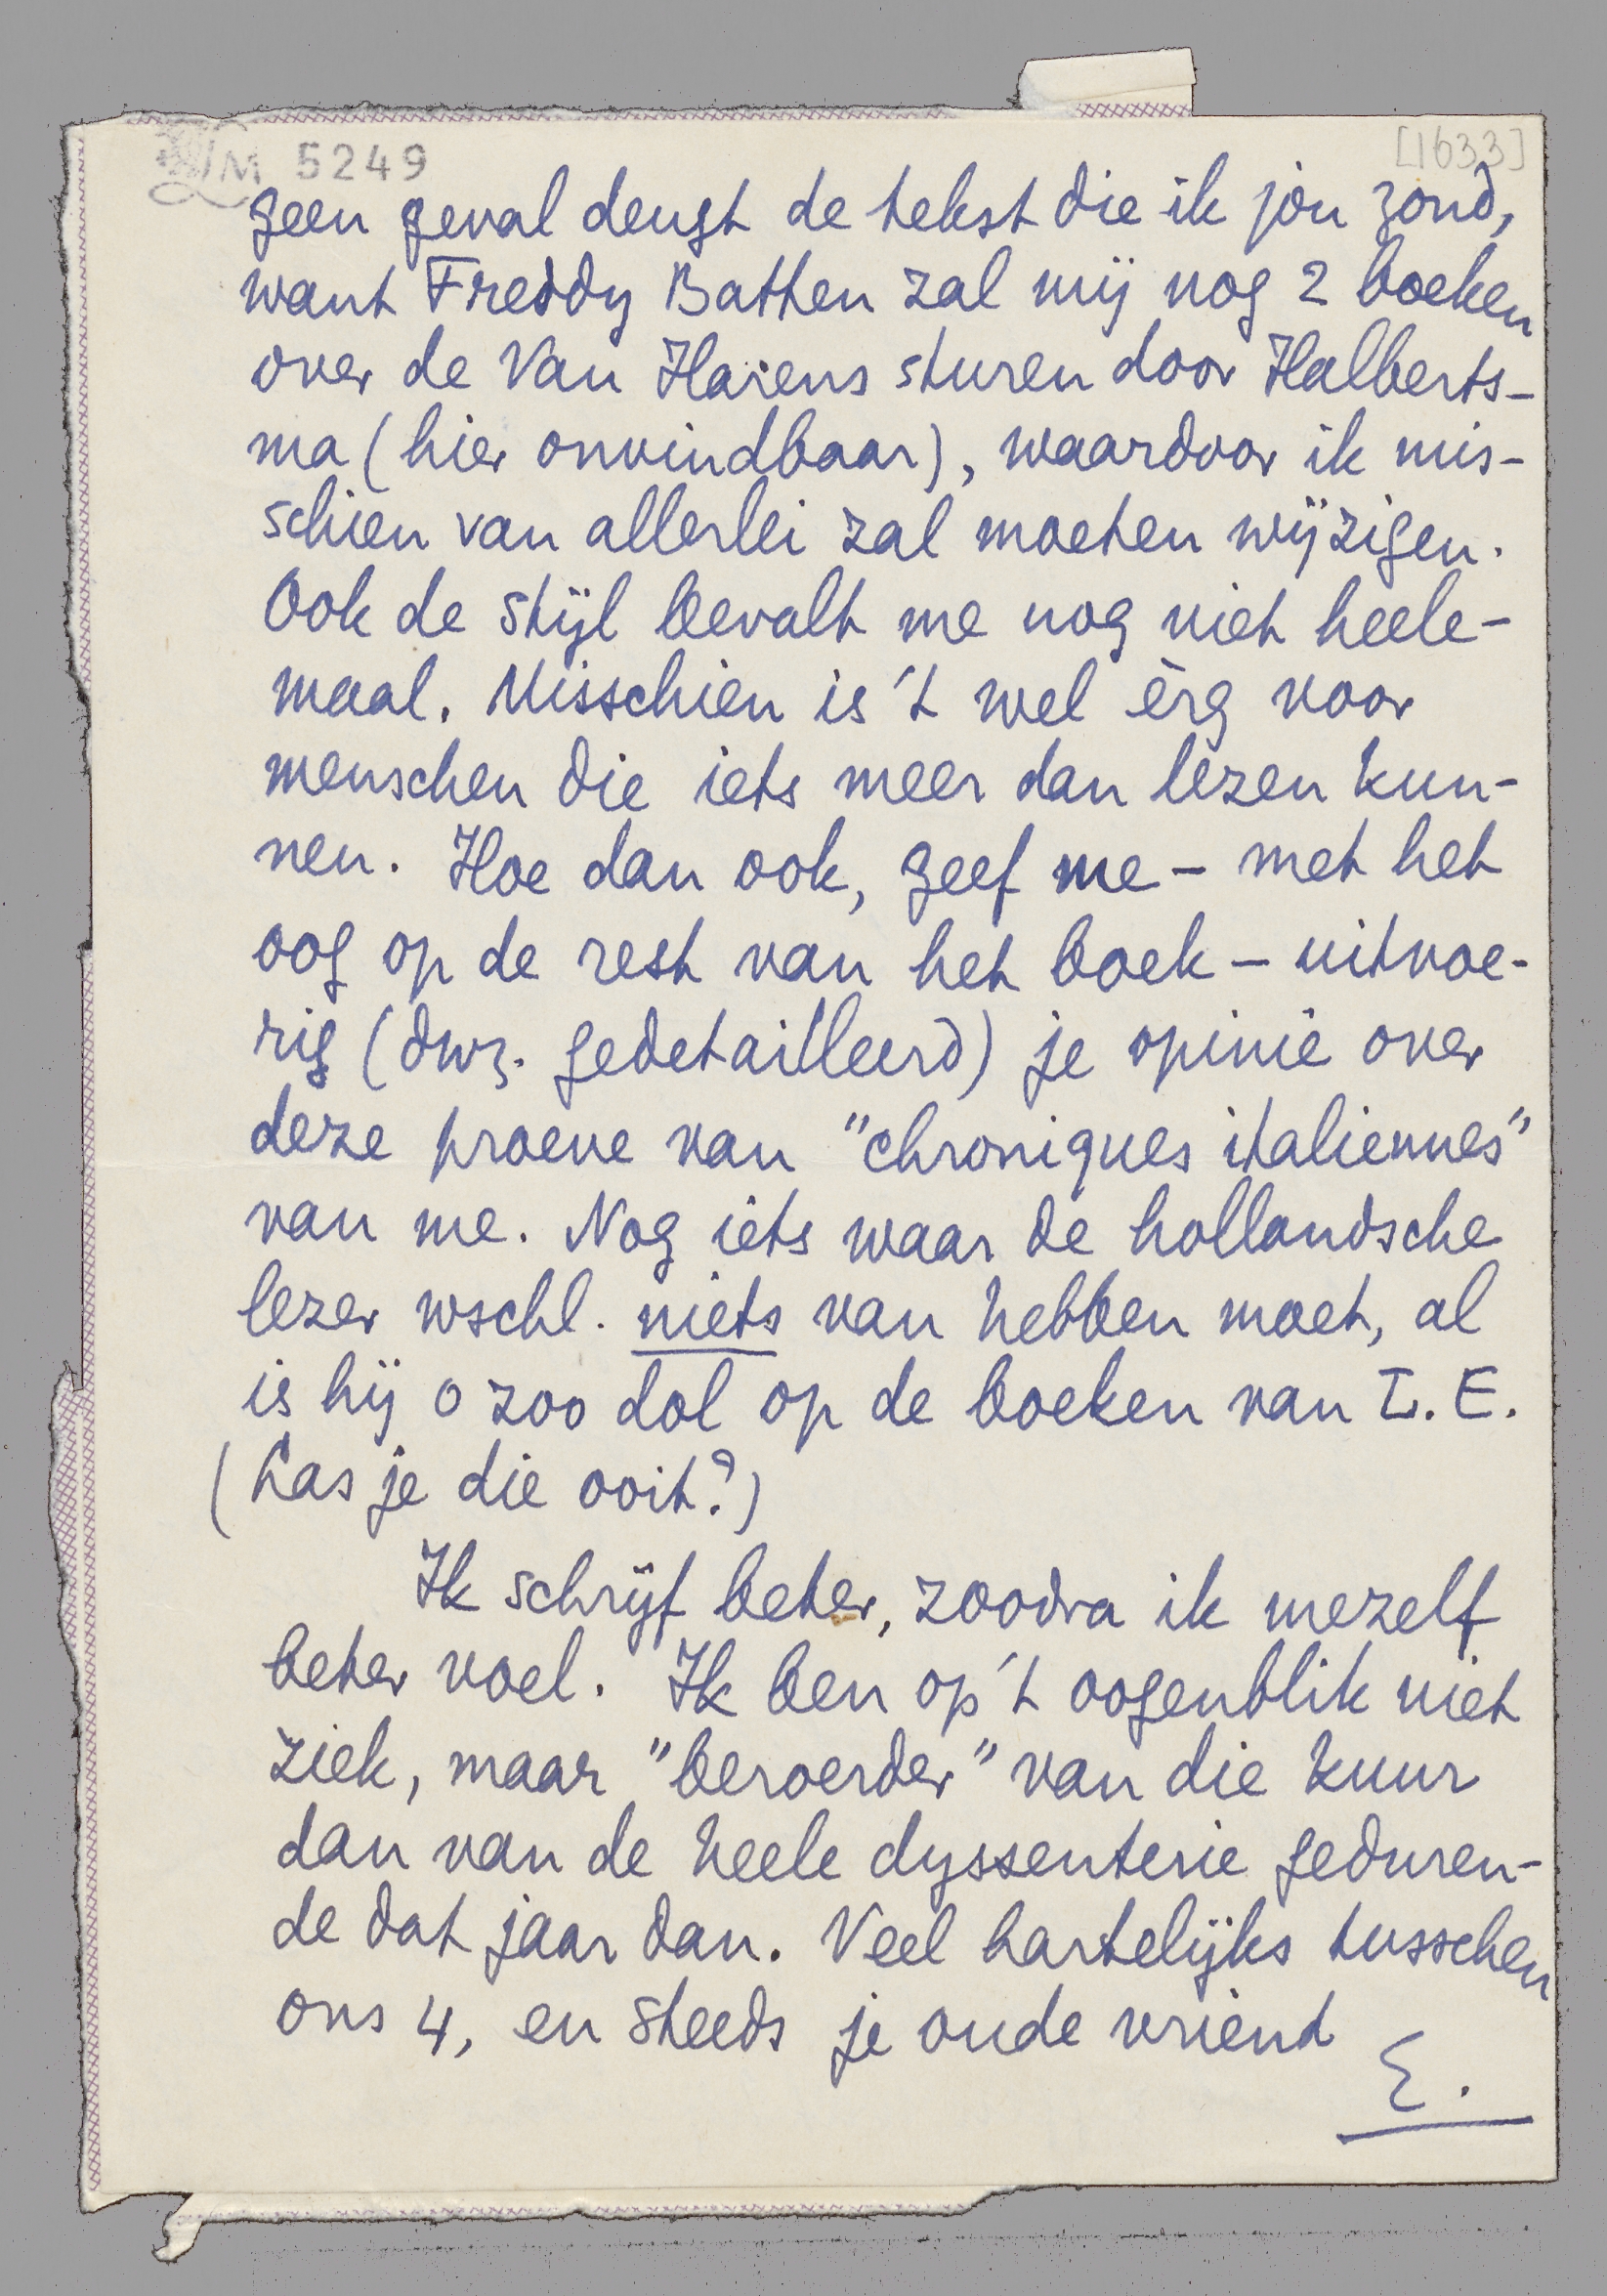 LM 5249
[1633]
geen geval deugt de tekst die ik jou zond,
want Freddy Batten zal mij nog 2 boeken
over de Van Harens sturen door Halberts-
ma (hier onvindbaar), waardoor ik mis-
schien van allerlei zal moeten wijzigen.
Ook de stijl bevalt me nog niet heele-
maal. Misschien is 't wel èrg voor
menschen die iets meer dan lezen kun-
nen. Hoe dan ook, geef me – met het
oog op de rest van het boek – uitvoe-
rig (dwz. gedetailleerd) je opinie over
deze proeve van "chroniques italiennes"
van me. Nog iets waar de hollandsche
lezer wschl. niets van hebben moet, al
is hij o zoo dol op de boeken van L. E.
(Las je die ooit?)
Ik schrijf beter, zoodra ik mezelf
beter voel. Ik ben op 't oogenblik niet
ziek, maar "beroerder" van die kuur
dan van de heele dyssenterie geduren-
de dat jaar dan. Veel hartelijks tusschen
ons 4, en steeds je oude vriend
E.